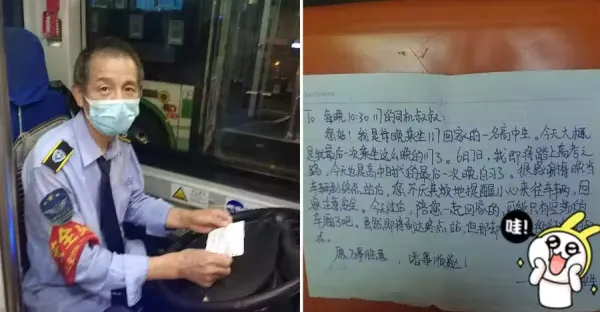 安全
To 每晚10:30 117的司机叔叔:
您好!我是每晚乘坐117回家的一名高中生。今天大概
是我最后一次乘坐这么晚的117了。6月7日,我即将踏上高考之
路,今天也是高中时代的最后一次晚自习了。很感谢每晚当
车辆到终点站后,您不厌其烦地提醒小心来往车辆,
注意安全。今天过后,陪您一起回家的,可能只有空荡的
车厢了吧。虽然即将到达终点站,但那
愿万事胜意,诸事顺遂!
生
哇!